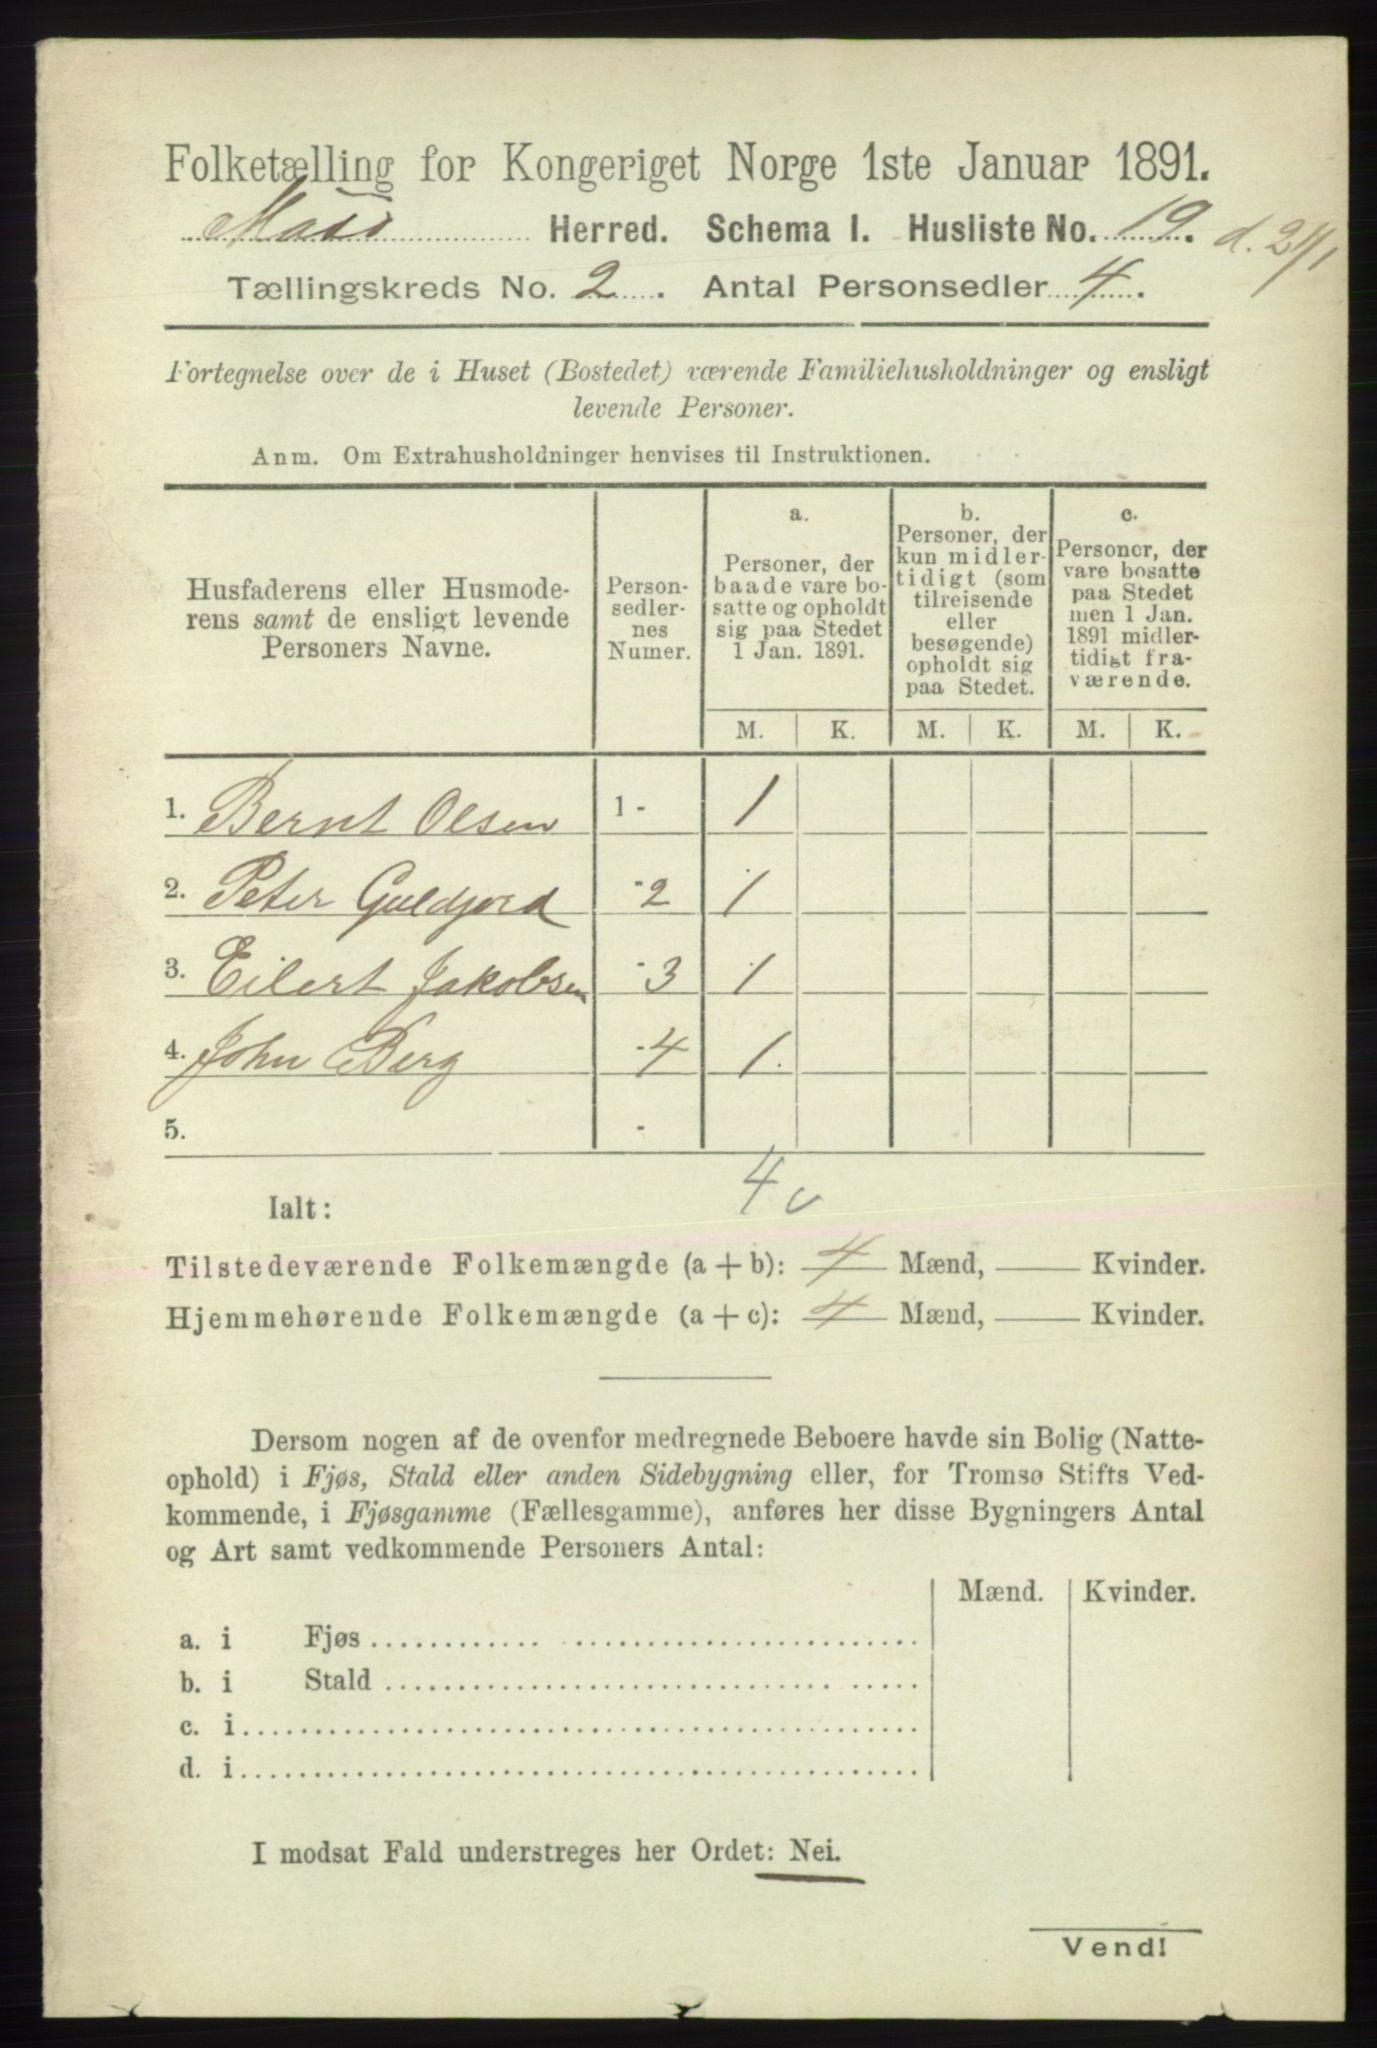 Folketælling for Kongeriget Norge 1ste Januar 1891.
Maso Herred. Schema I. Husliste No. 19. d. 2/1
Tællingskreds No. 2. Antal Personsedler 4.
Fortegnelse over de i Huset (Bostedet) værende Familiehusholdninger og ensligt
levende Personer.
Anm. Om Extrahusholdninger henvises til Instruktionen.
Husfaderens eller Husmode-
rens samt de ensligt levende
Personers Navne.
Person-
sedler-
nes
Numer.
a.
Personer, der
baade vare bo-
satte og opholdt
sig paa Stedet
1 Jan. 1891.
b.
Personer, der
kun midler-
tidigt (som
tilreisende
eller
besøgende)
opholdt sig
paa Stedet.
c.
Personer, der
vare bosatte
paa Stedet
men 1 Jan.
1891 midler-
tidigt fra-
værende.
M. K. M. K. M. K.
1. Bernt Olsen 1 - 1
2. Peter Guldjord - 2 1
3. Eilert Jakobsen - 3 1
4. John Berg - 4 1.
5. -
4
Ialt:
Tilstedeværende Folkemængde (a + b): 4 Mænd, — Kvinder.
Hjemmehørende Folkemængde (a + c): 4 Mænd, — Kvinder.
Dersom nogen af de ovenfor medregnede Beboere havde sin Bolig (Natte-
ophold) i Fjøs, Stald eller anden Sidebygning eller, for Tromsø Stifts Ved-
kommende, i Fjøsgamme (Fællesgamme), anføres her disse Bygningers Antal
og Art samt vedkommende Personers Antal:
Mænd. Kvinder.
a. i Fjøs
b. i Stald
c. i
d. i
I modsat Fald understreges her Ordet: Nei.
Vend!